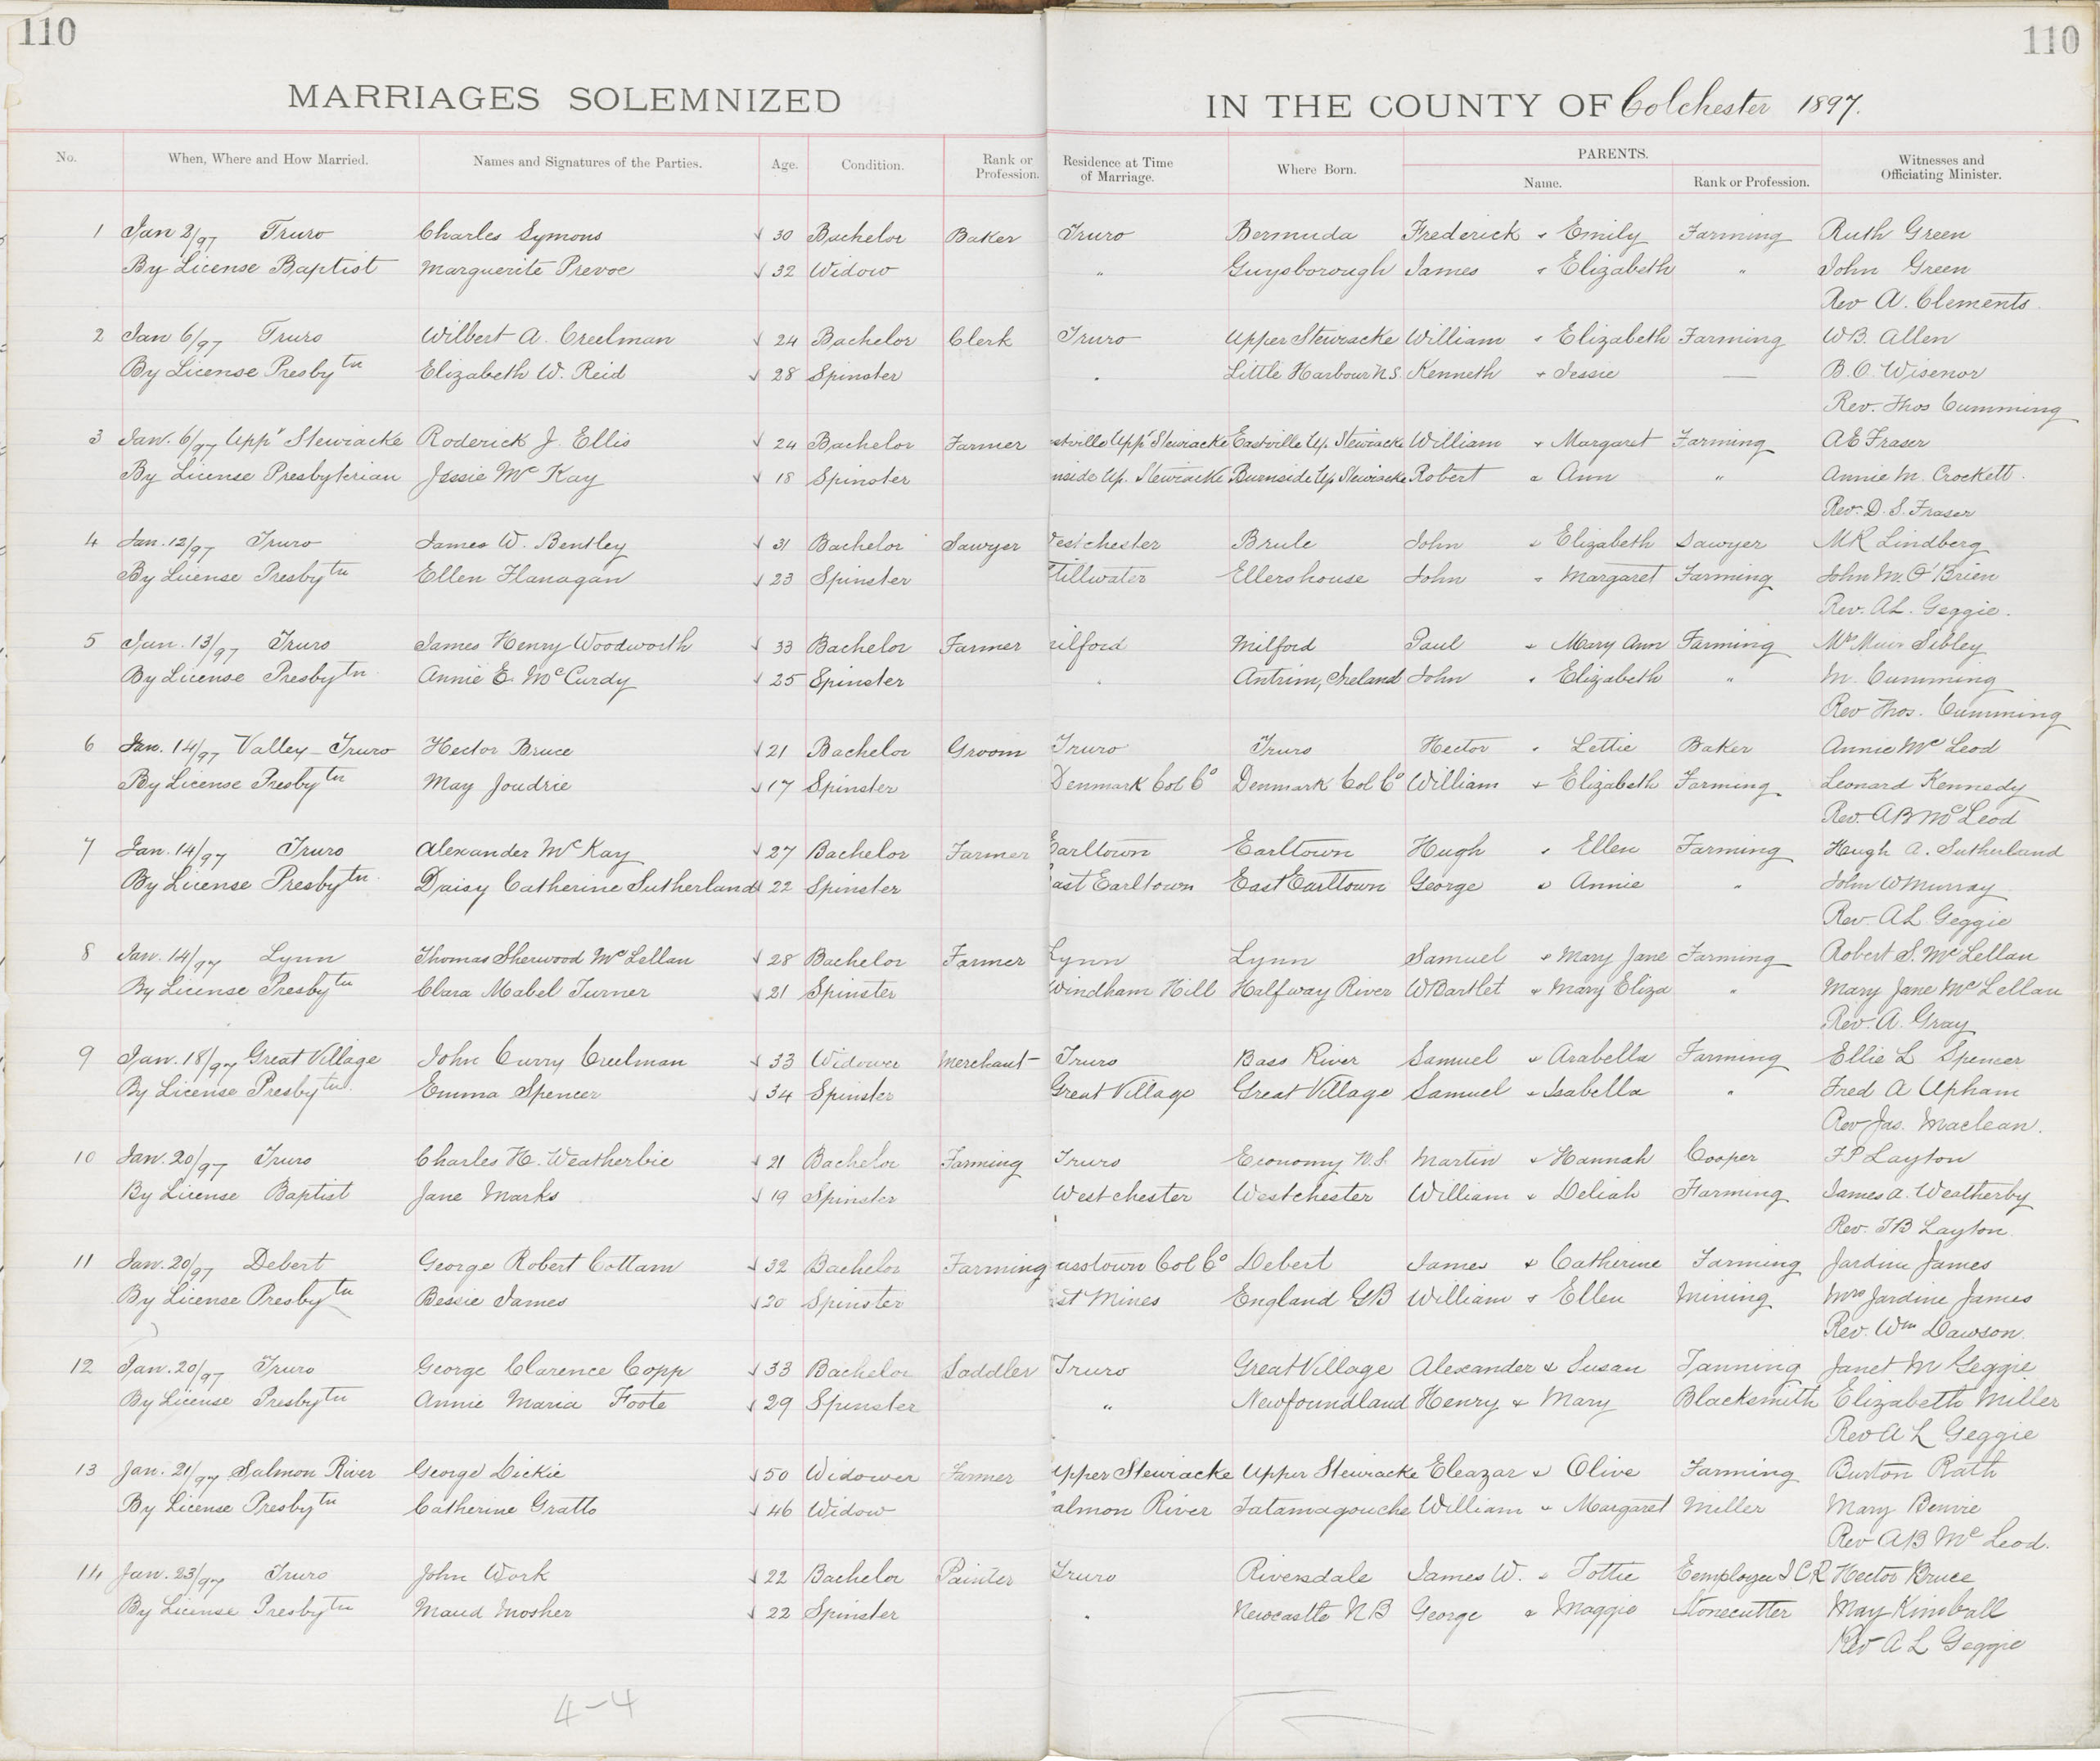 110
110
MARRIAGES SOLEMNIZED IN THE COUNTY OF Colchester 1897.
No. When, Where and How Married. Names and Signatures of the Parties. Age. Condition. Rank or Profession. Residence at Time of Marriage. Where Born. PARENTS. Name. Rank or Profession. Witnesses and Officiating Minister.
1 Jan 2/97 Truro Charles Symons 30 Bachelor Baker Truro Bermuda Frederick & Emily Farming Ruth Green
By License Baptist Marguerite Prevoe 32 Widow " Guysborough James & Elizabeth " John Green
Rev A. Clements.
2 Jan 6/97 Truro Wilbert A. Creelman 24 Bachelor Clerk Truro Upper Stewiacke William & Elizabeth Farming W.B. Allen
By License Presbytn Elizabeth W. Reid 28 Spinster " Little Harbour N.S. Kenneth & Jessie — B.O. Wisenor
Rev. Thos Cumming
3 Jan. 6/97 Uppr Stewiacke Roderick J. Ellis 24 Bachelor Farmer stville Uppr Stewiacke Eastville Up. Stewiacke William & Margaret Farming A E Fraser
By License Presbyterian Jessie Mc Kay 18 Spinster nside Up. Stewiacke Burnside Up Stewiacke Robert & Ann " Annie M. Crockett.
Rev. D. S. Fraser
4 Jan. 12/97 Truro James W. Bentley 31 Bachelor Sawyer estchester Brule John & Elizabeth Sawyer M R Lindberg
By License Presbytn Ellen Flanagan 23 Spinster Stillwater Ellershouse John & Margaret Farming John M. O'Brien
Rev. A.L. Geggie.
5 Jan. 13/97 Truro James Henry Woodworth 33 Bachelor Farmer ilford Milford Paul & Mary Ann Farming Sibley
By License Presbytn. Annie E. McCurdy 25 Spinster " Antrim, Ireland John & Elizabeth " M. Cumming
Rev Thos. Cumming
6 Jan. 14/97 Valley - Truro Hector Bruce 21 Bachelor Groom Truro Truro Hector & Lettie Baker Annie Mc Leod
By License Presbytn May Joudrie 17 Spinster Denmark Col Co Denmark Col Co William & Elizabeth Farming Leonard Kennedy
Rev. A B McLeod
7 Jan. 14/97 Truro Alexander McKay 27 Bachelor Farmer Earltown Earltown Hugh & Ellen Farming Hugh A. Sutherland
By License Presbytn. Daisy Catherine Sutherland 22 Spinster ast Earltown East Earltown George & Annie " John W Murray
Rev. A L Geggie
8 Jan. 14/97 Lynn Thomas Sherwood McLellan 28 Bachelor Farmer Lynn Lynn Samuel & Mary Jane Farming Robert S. McLellan
By License Presbytn Clara Mabel Turner 21 Spinster Windham Hill Halfway River W Bartlet & Mary Eliza " Mary Jane McLellan
Rev. A. Gray
9 Jan. 18/97 Great Village John Curry Creelman 33 Widower Merchant Truro Bass River Samuel & Arabella Farming Ellie L Spencer
By License Presbytn. Emma Spencer 34 Spinster Great Village Great Village Samuel & Isabella " Fred A Upham
Rev Jas. Maclean.
10 Jan. 20/97 Truro Charles H. Weatherbie 21 Bachelor Farming Truro Economy N.S. Martin & Hannah Cooper F P Layton
By License Baptist Jane Marks 19 Spinster Westchester Westchester William & Deliah Farming James A. Weatherby
Rev. T B Layton
11 Jan. 20/97 Debert George Robert Cottam 32 Bachelor Farming asstown Col Co Debert James & Catherine Farming Jardine James
By License Presbytn Bessie James 20 Spinster st Mines England G B William & Ellen Mining Mrs Jardine James
Rev. Wm Dawson.
12 Jan. 20/97 Truro George Clarence Copp 33 Bachelor Saddler Truro Great Village Alexander & Susan Tanning Janet M Geggie
By License Presbytn Annie Maria Foote 29 Spinster " Newfoundland Henry & Mary Blacksmith Elizabeth Miller
Rev A L Geggie
13 Jan. 21/97 Salmon River George Dickie 50 Widower Farmer Upper Stewiacke Upper Stewiacke Eleazar & Olive Farming Burton Rath
By License Presbytn Catherine Gratto 46 Widow almon River Tatamagouche William & Margaret Miller Mary Benvie
Rev A B McLeod.
14 Jan. 23/97 Truro John Work 22 Bachelor Painter Truro Riversdale James W. & Tottie Eemployee I C R Hector Bruce
By License Presbytn Maud Mosher 22 Spinster " Newcastle N B George & Maggie Stonecutter May Kimball
Rev A L Geggie
4-4